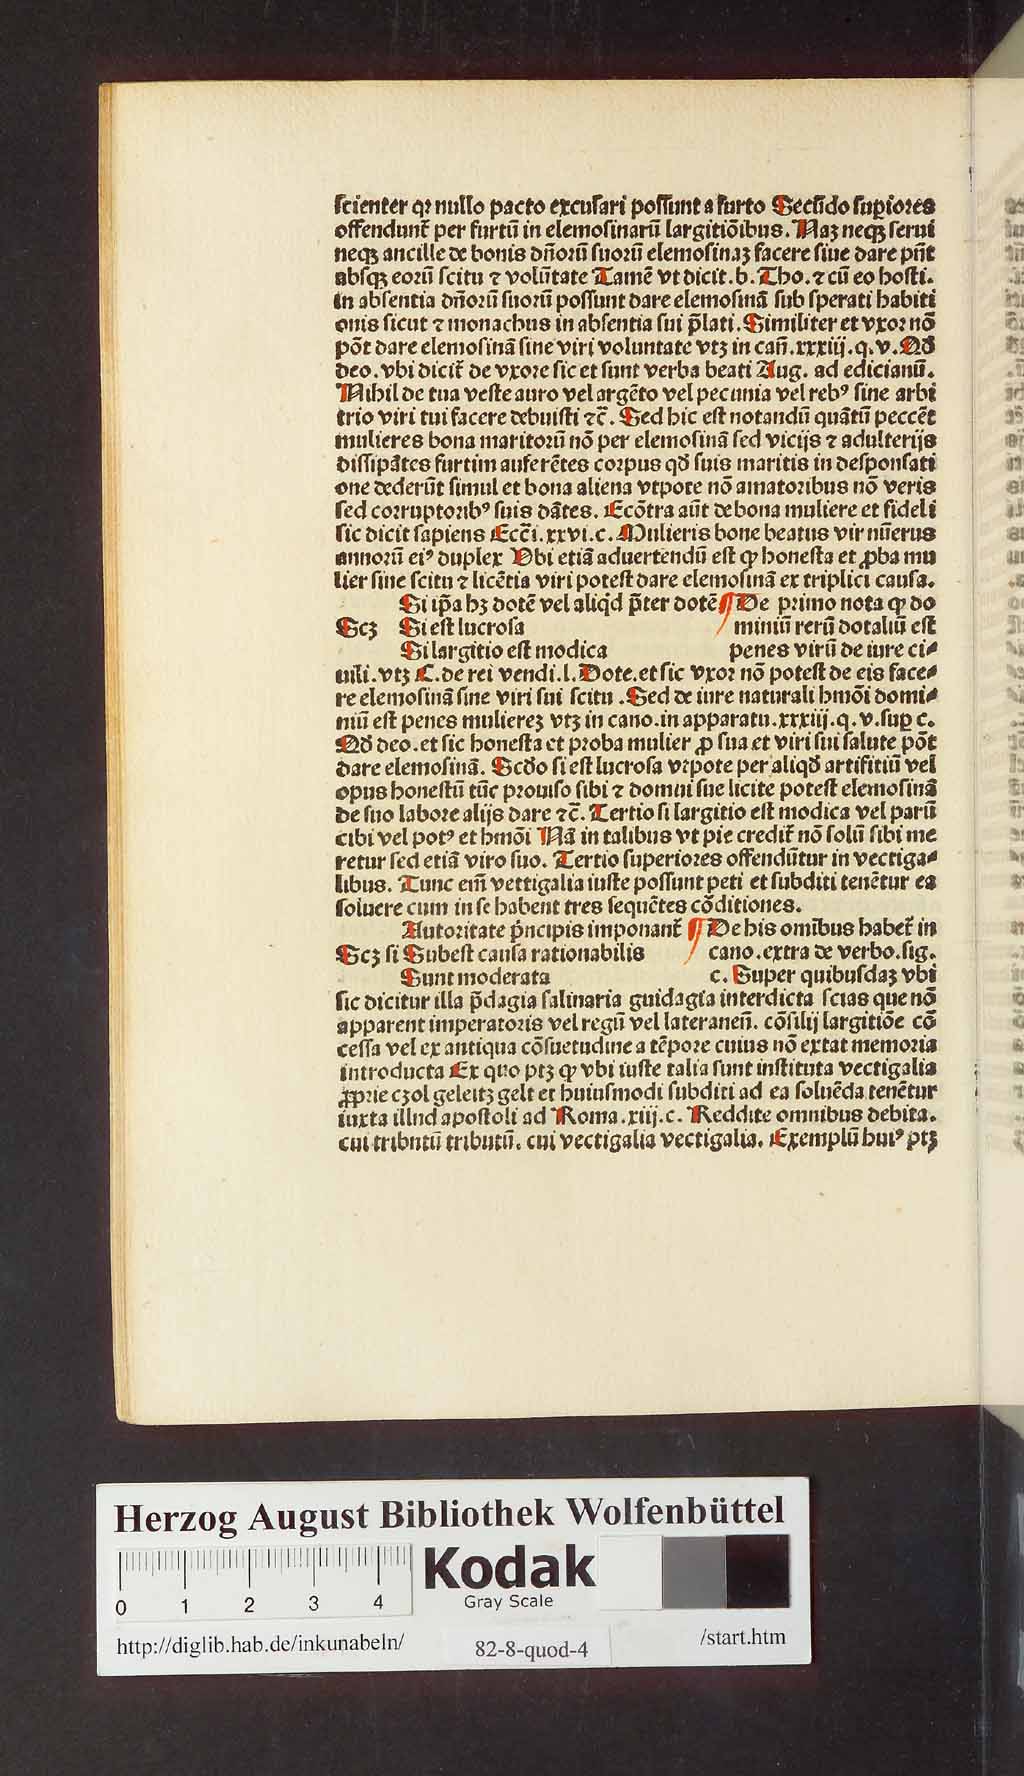 scienter qꝛ nullo pacto excusari possunt a furto Secūdo suꝑiores
offendunt̄ per furtū in elemosinarū largitiōibus. Naꝫ neqꝫ serui
neqꝫ ancille de bonis dn̄orū suorū elemosinaꝫ facere siue dare pn̄t
absqꝫ eorū scitu ⁊ volūtate Tamē vt dicit .b. Tho. ⁊ cū eo hosti.
in absentia dn̄orū suorū possunt dare elemosinā sub sperati habiti
onis sicut ⁊ monachus in absentia sui p̄lati. Similiter et vxor nō
pōt dare elemosinā sine viri voluntate vtꝫ in can̄ .xxxiij. q. v. Qd̄
deo. vbi dicit̄ de vxore sic et sunt verba beati Aug. ad edicianū.
Nihil de tua veste auro vel argēto vel pecunia vel rebꝰ sine arbi
trio viri tui facere debuisti ⁊c̄. Sed hic est notandū quātū peccēt
mulieres bona maritorū nō per elemosinā sed vicijs ⁊ adulterijs
dissipātes furtim auferētes corpus qd̄ suis maritis in desponsati
one dederūt simul et bona aliena vtpote nō amatoribus nō veris
sed corruptoribꝰ suis dātes. Ecōtra aūt de bona muliere et fideli
sic dicit sapiens Ecc̄i. xxvi. c. Mulieris bone beatus vir nūerus
annorū eiꝰ duplex Vbi etiā aduertendū est ꝙ honesta et ꝓba mu
lier sine scitu ⁊ licētia viri potest dare elemosinā ex triplici causa.
Si ip̄a hꝫ dotē vel aliqd̄ p̄ter dotē ¶ De primo nota ꝙ do
Scꝫ Si est lucrosa miniū rerū dotaliū est
Si largitio est modica penes virū de iure ci⸗
uili. vtꝫ C. de rei vendi. l. Dote. et sic vxor nō potest de eis face⸗
re elemosinā sine viri sui scitu . Sed de iure naturali hmōi domi⸗
niū est penes muliereꝫ vtꝫ in cano. in apparatu. xxxiij. q. v. suꝑ c.
Qd̄ deo. et sic honesta et proba mulier ꝓ sua et viri sui salute pōt
dare elemosinā. Scd̄o si est lucrosa vtpote per aliqd̄ artifitiū vel
opus honestū tūc prouiso sibi ⁊ domui sue licite potest elemosinā
de suo labore alijs dare ⁊c̄. Tertio si largitio est modica vel parū
cibi vel potꝰ et hmōi Nā in talibus vt pie credit̄ nō solū sibi me
retur sed etiā viro suo. Tertio superiores offendūtur in vectiga⸗
libus. Tunc em̄ vettigalia iuste possunt peti et subditi tenētur ea
soluere cum in se habent tres sequētes cōditiones.
Autoritate p̄ncipis imponant̄ ¶ De his omībus habet̄ in
Scꝫ si Subest causa rationabilis cano. extra de verbo. sig.
Sunt moderata c. Super quibusdaꝫ vbi
sic dicitur illa p̄dagia salinaria guidagia interdicta scias que nō
apparent imperatoris vel regū vel lateranen̄. cōsilij largitiōe cō
cessa vel ex antiqua cōsuetudine a tēpore cuius nō extat memoria
introducta Ex quo ptꝫ ꝙ vbi iuste talia sunt instituta vectigalia
ꝓprie czol geleitꝫ gelt et huiusmodi subditi ad ea soluēda tenētur
iuxta illnd apostoli ad Roma. xiij. c. Reddite omnibus debita.
cui tributū tributū. cui vectigalia vectigalia. Exemplū huiꝰ ptꝫ
Herzog August Bibliothek Wolfenbüttel
0 1 2 3 4
Kodak
Gray Scale
http://diglib.hab.de/inkunabeln/ 82-8-quod-4 /start.htm